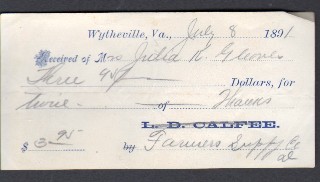 Wytheville, Va., July 8 1891
Received of Mrs Julia K. Gleaves
Three 95/ Dollars, for
of Thanks
L. D. CALFEE.
$ 3 95 by Farmers Supply Co